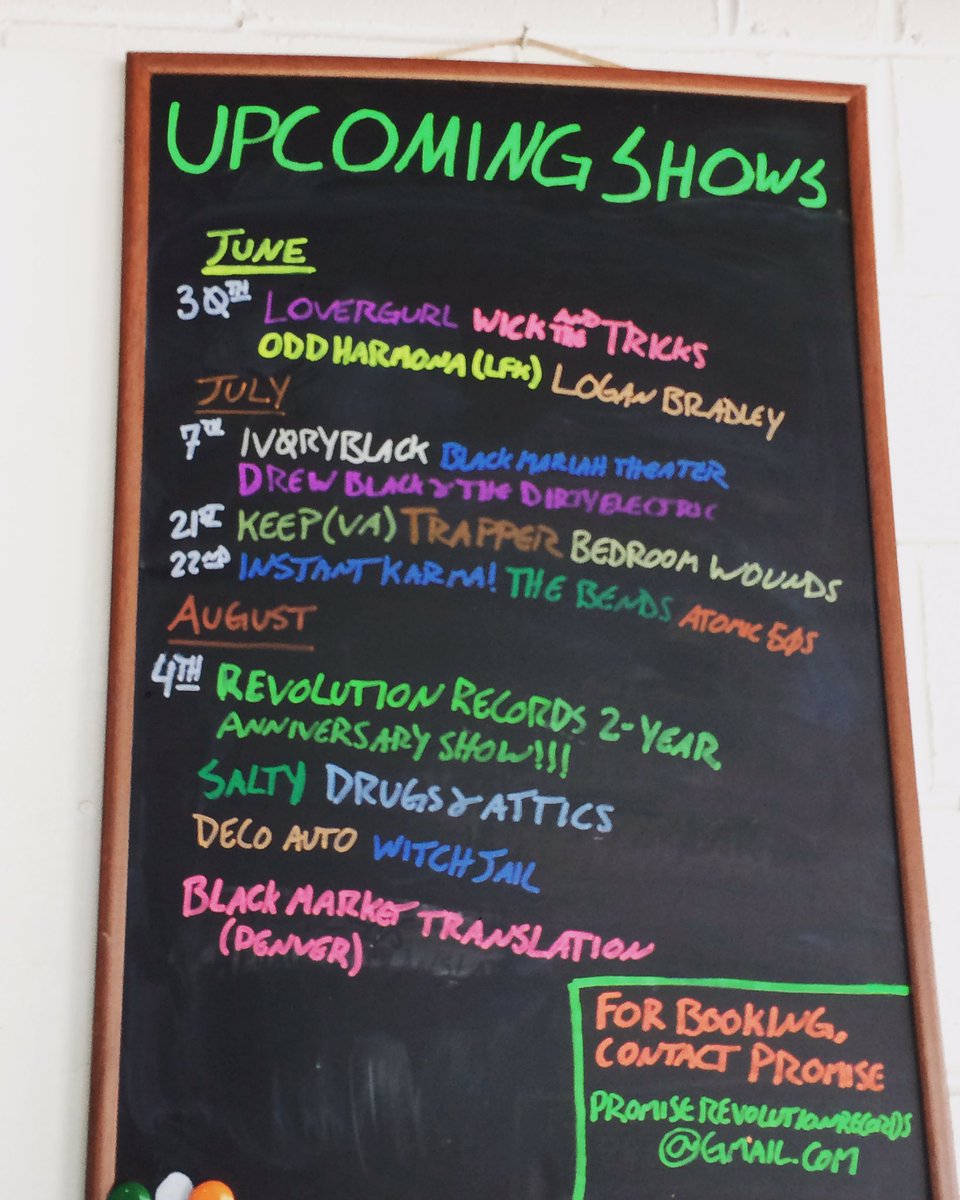 UPCOMING SHOWS
JUNE
30TH LOVERGURL WICK AND THE TRICKS
ODD HARMONA (LFK) LOGAN BRADLEY
JULY
7TH IVØRYBLACK BLACK MARIAH THEATER
DREW BLACK & THE DIRTY ELECTRIC
21ST KEEP (VA) TRAPPER BEDROOM WOUNDS
22ND INSTANT KARMA! THE BENDS ATOMIC 50S
AUGUST
4TH REVOLUTION RECORDS 2-YEAR
ANNIVERSARY SHOW!!!
SALTY DRUGS & ATTICS
DECO AUTO WITCH JAIL
BLACK MARKET TRANSLATION
(DENVER)
FOR BOOKING,
CONTACT PROMISE
PROMISEREVOLUTIONRECORDS
@GMAIL.COM